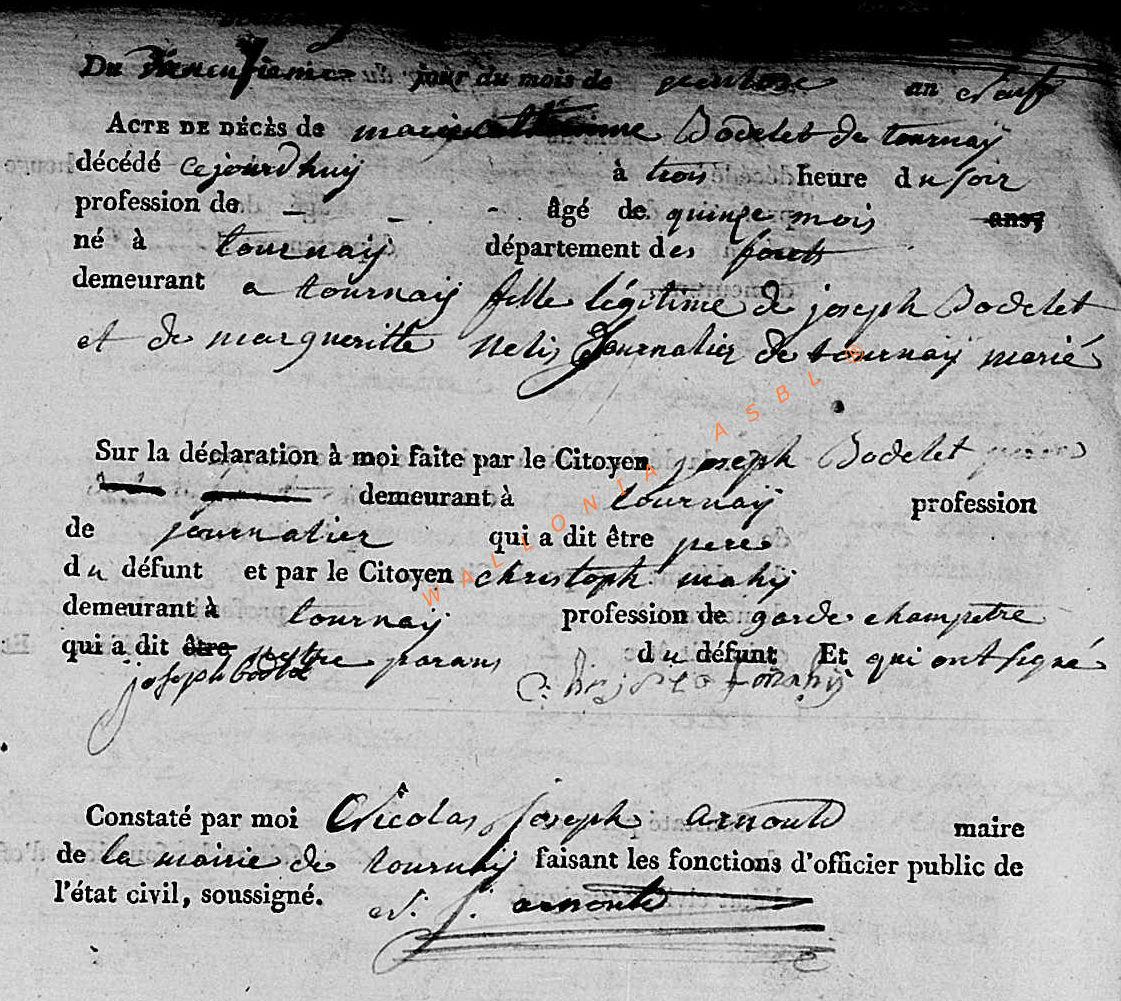 Du jour du mois de an
ACTE DE DÉCÈS de Bodelet de tournaÿ
décédé cejourdhuÿ à trois heure du soir
profession de - - - âgé de quinze mois ans
né à tournaÿ département des
demeurant a tournaÿ fille légitime de joseph Bodelet
et de margueritte Nelis Journalier de tournaÿ marié
Sur la déclaration à moi faite par le Citoyen joseph Bodelet
demeurant à tournaÿ profession
de journalier qui a dit être pere
du défunt et par le Citoyen christoph mahÿ
demeurant à tournaÿ profession de garde champetre
qui a dit être du défunt Et qui ont signé
Constaté par moi Nicolas joseph arnould maire
de la mairie de tournaÿ faisant les fonctions d'officier public de
l'état civil, soussigné. N. j. arnould
WALLONIA ASBL ©